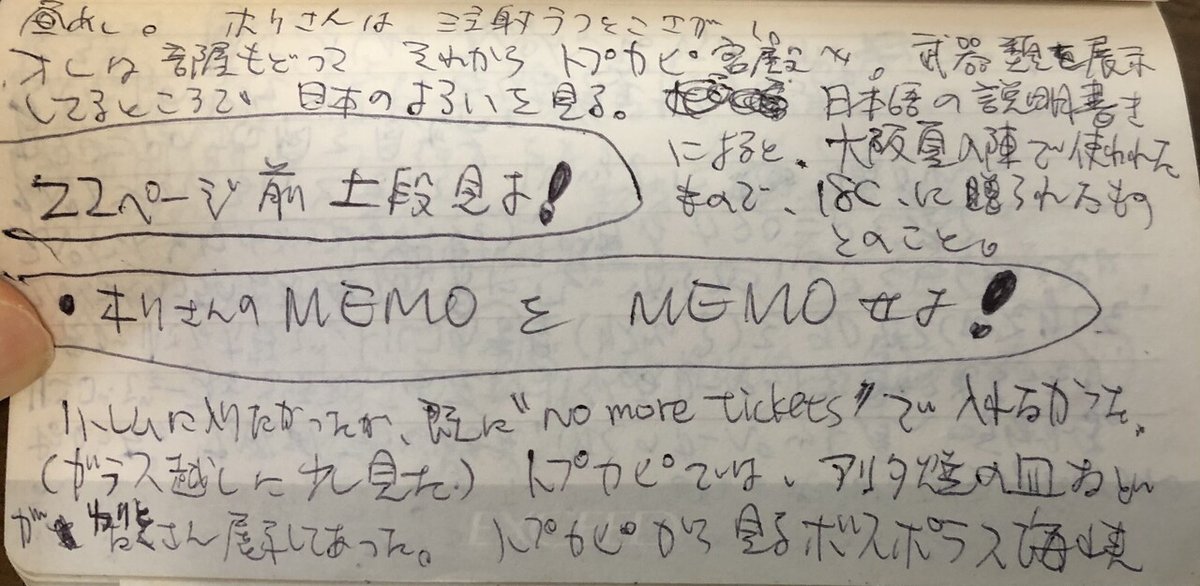 昼めし。 ホリさんは 注射うつとこさがし。
オレは 部屋もどって それから トプカピ宮殿へ。 武器類を展示
してるところで 日本のよろいを見る。 日本語の説明書き
によると、大阪夏の陣で使われた
もので、18C.に贈られたもの
とのこと。
22ページ前 上段見よ!
・ホリさんのMEMO を MEMO せよ!
ハレムに入りたかったが、既に"no more tickets"で入れなかった。
(ガラス越しに 見た。) トプカピでは、アリタ焼の皿など
が たくさん展示してあった。 トプカピから 見るボスポラス海峡